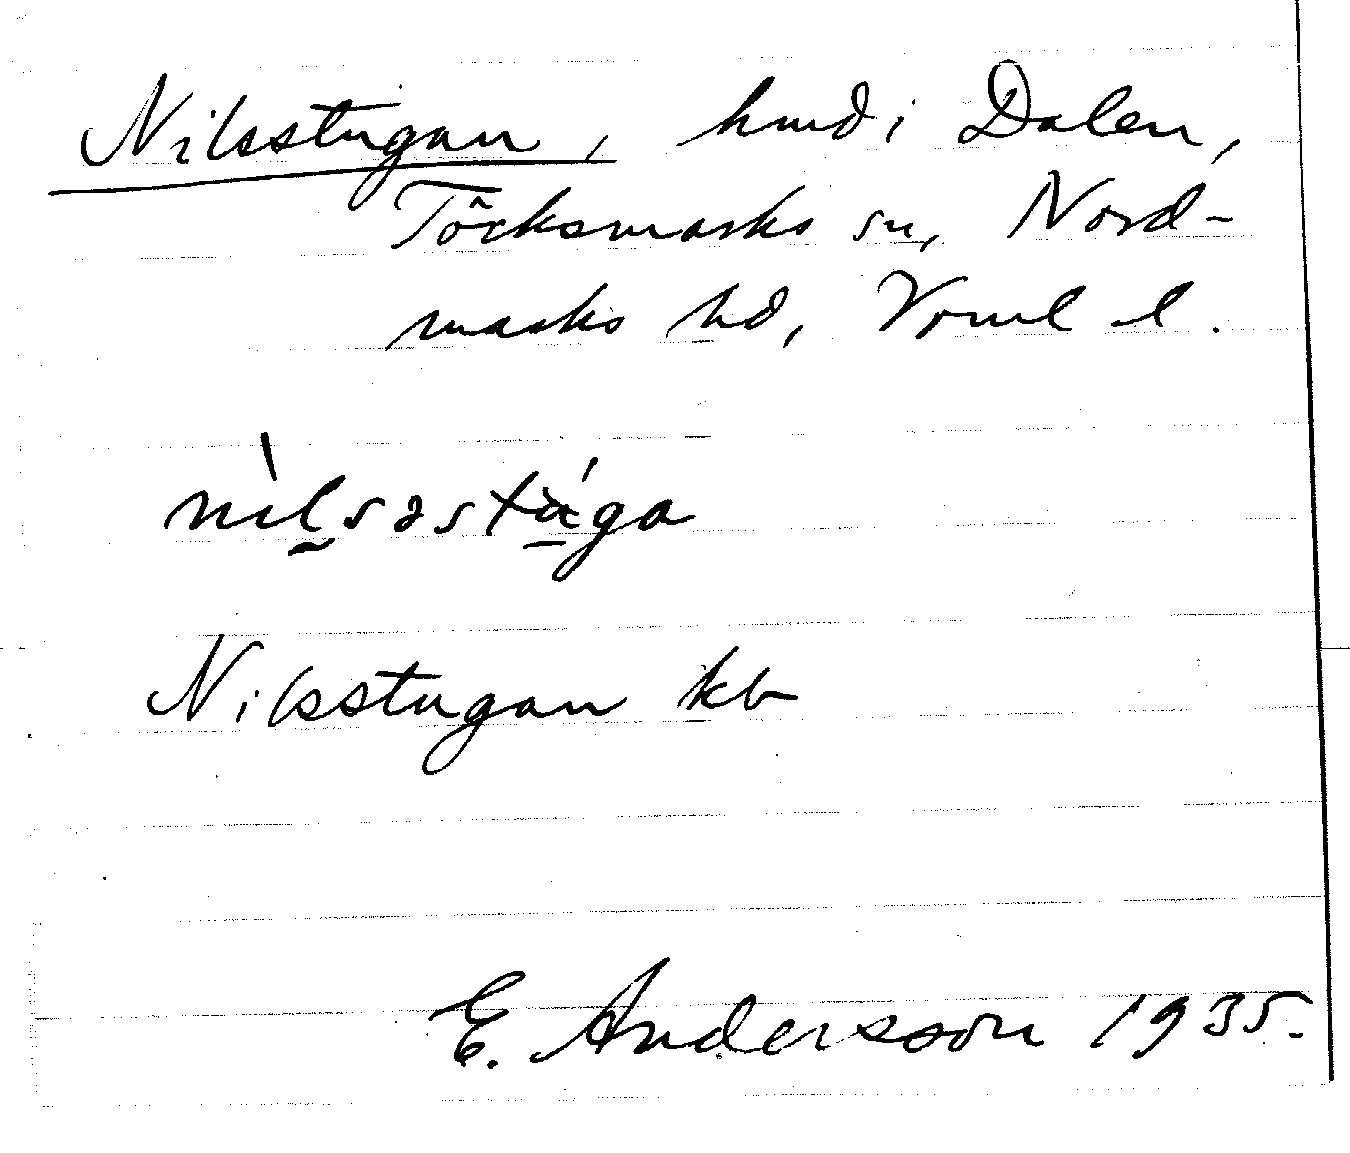 Nilsstugan, hmd i Dalen,
Töcksmarks sn, Nord-
marks hd, Vrml l.
nìlsəstúga
Nilsstugan kb
E. Andersson 1935.